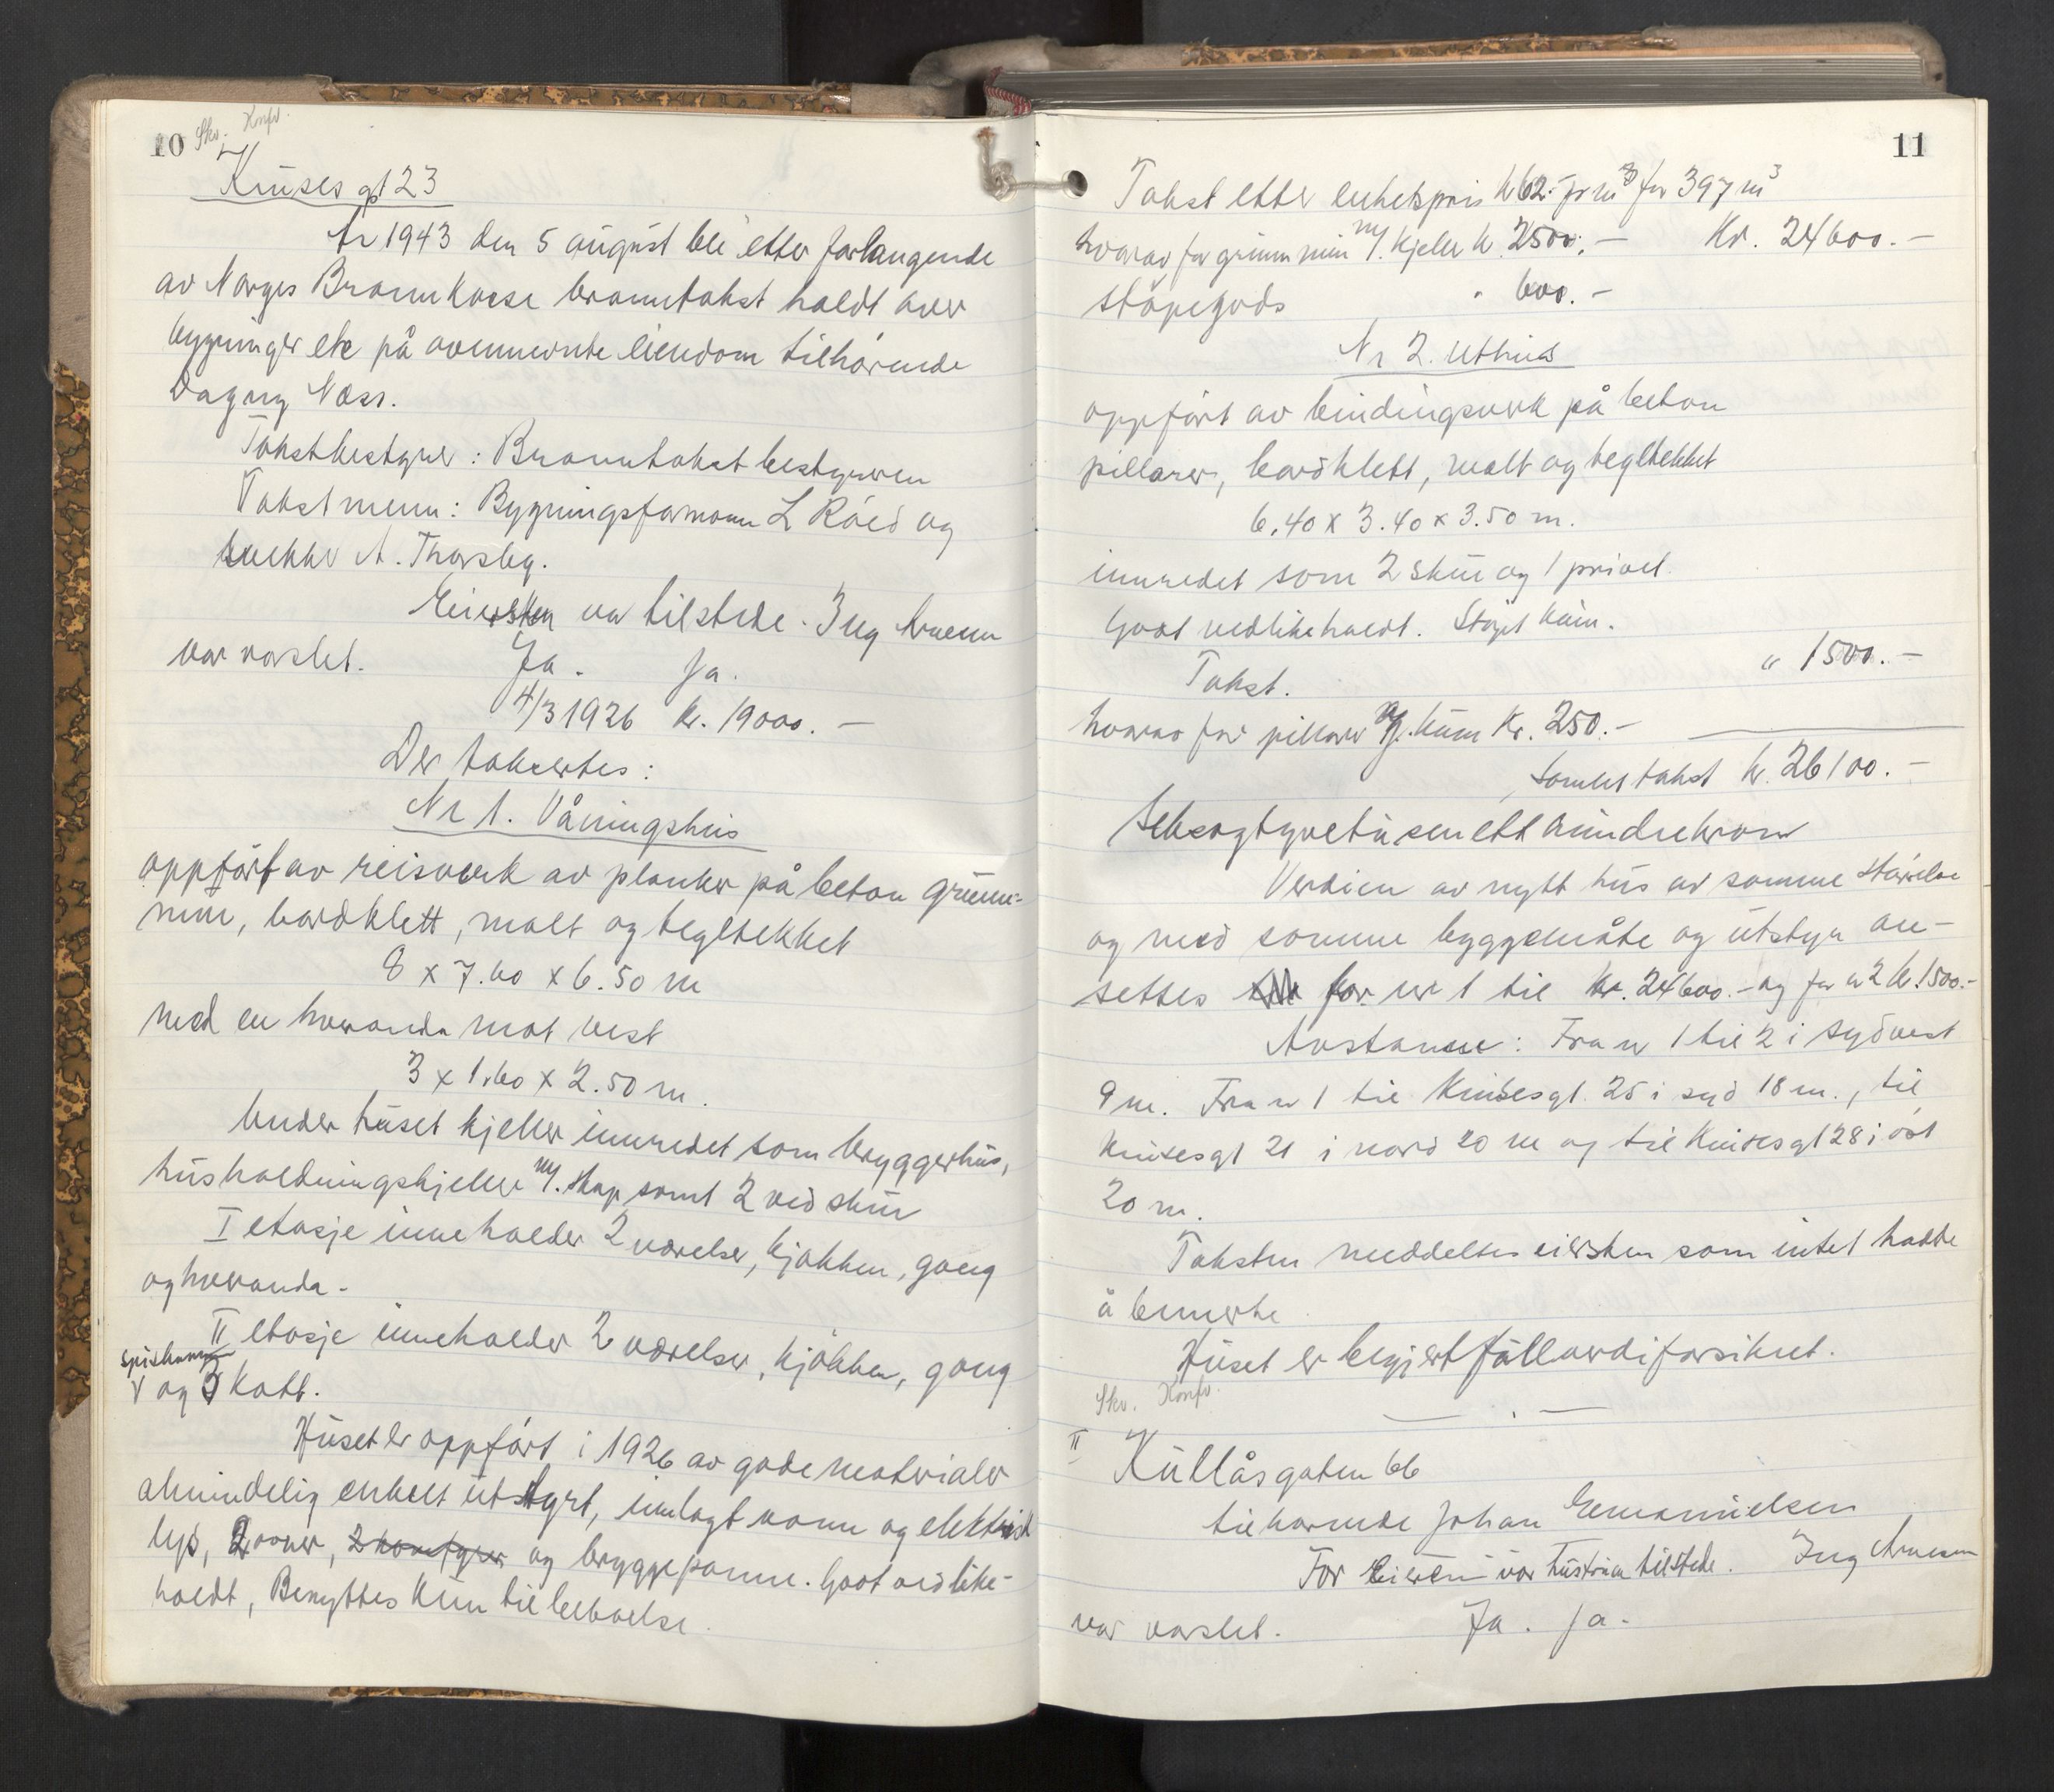 10 Skv. Konfr.
Kruses gt 23
År 1943 den 5 august ble etter forlangende
av Norges Brannkasse branntakst holdt over
bygninger etc på ovennevnte eiendom tilhørende
Dagny Næss.
Takstbestyrer: Branntakstbestyreren
Takstmenn: Bygningsformann L Røed og
snekker A. Thorsby.
Eiersken var tilstede. Ing Arnesen
var varslet. Ja. Ja.
4/3 1926 kr. 19000.–
Der taksertes:
Nr 1. Våningshus
oppført av reisverk av planker på beton grunn-
mur, bordklett, malt og tegltekket
8 x 7.60 x 6.50 m
med en hveranda mot vest
3 x 1.60 x 2.50 m.
Under huset kjeller innredet som bryggerhus,
husholdningskjeller m/. skap samt 2 vedskur
I etasje inneholder 2 værelser, kjøkken, gang
og hveranda.
II etasje inneholder 2 værelser, kjøkken, gang
spiskammer
V og kott.
Huset er oppført i 1926 av gode materialer
almindelig enkelt utstyrt, innlagt vann og elektrisk
lys, 2 ovner, 2 komfyrer og bryggepanne. Godt vedlike-
holdt, Benyttes kun til beboelse.
11
Takst etter enhetspris kr 62.- pr m3 for 397 m3
hvorav for grunnmur m/. kjeller kr. 2500.– Kr. 24600.–
støpegods " 600.–
Nr 2. Uthus
oppført av bindingsverk på beton
pillarer, bordklett, malt og tegltekket
6.40 x 3.40 x 3.50 m.
innredet som 2 skur og 1 privet.
Godt vedlikeholdt. Støpt kum.
Takst. " 1500.–
hvorav for pillarer m/. kum Kr. 250.–
Samlet takst kr. 26100.–
Seksogtyvetusenetthundrekroner
Verdien av nytt hus av samme størrelse
og med samme byggemåte og utstyr an-
settes for nr 1 til kr. 24600.– og for nr 2 kr. 1500.–
Avstander: Fra nr 1 til 2 i sydvest
9 m. Fra nr 1 til Krusesgt. 25 i syd 18 m., til
Krusesgt 21 i nord 20 m og til Krusesgt 28 i øst
20 m.
Taksten meddeltes eiersken som intet hadde
å bemerke
Huset er begjert fullverdiforsikret.
Skv. Konfr.
II Kullåsgaten 66
tilhørende Johan Emanuelsen
For eieren var hustruen tilstede. Ing Arnesen
var varslet. Ja. Ja.